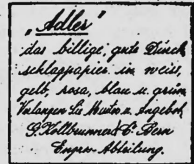 „Adler"
das billige, gute Einck
schlagpapier in weiß,
gelb, rosa, blau u. grün
Verlangen Sie Muster u. Angebot,
G. Kollbrunner & C. Bern
Engros-Abteilung.